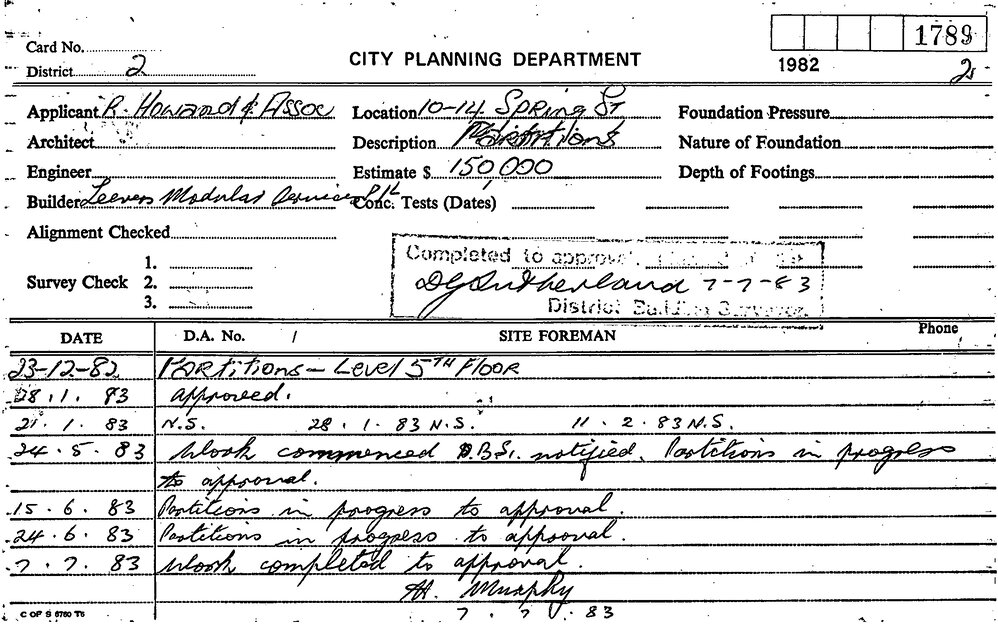 1789
Card No.
CITY PLANNING DEPARTMENT
1982
2
District 2
Applicant R. Howard & Assoc
Location 10-14 Spring St
Foundation Pressure
Architect
Description Partitions
Nature of Foundation
Engineer
Estimate $ 150,000
Depth of Footings
Builder Leevers Modular Services P/L
Conc. Tests (Dates)
Alignment Checked
Completed to approval
Survey Check 1.
2.
3.
DGSutherland 7-7-83
District Building Surveyor
DATE D.A. No. / SITE FOREMAN Phone
23-12-82 Partitions - Level 5TH Floor
28.1.83 approved.
21.1.83 N.S. 28.1.83 N.S. 11.2.83 N.S.
24.5.83 Work commenced D.B.S. notified. Partitions in progress
to approval.
15.6.83 Partitions in progress to approval.
24.6.83 Partitions in progress to approval.
7.7.83 Work completed to approval.
H. Murphy
7.7.83
C OF S 6760 T6